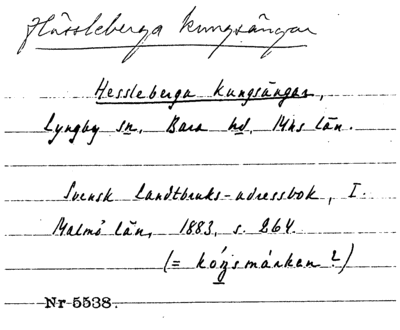 Hässleberga kungsängar
Hessleberga kungsängar,
Lyngby sn. Bara hd. Mhs län.
Svensk Landtbruks-adressbok, I.
Malmö län, 1883, s. 264.
(= kóŋsmárken ?)
Nr 5538.